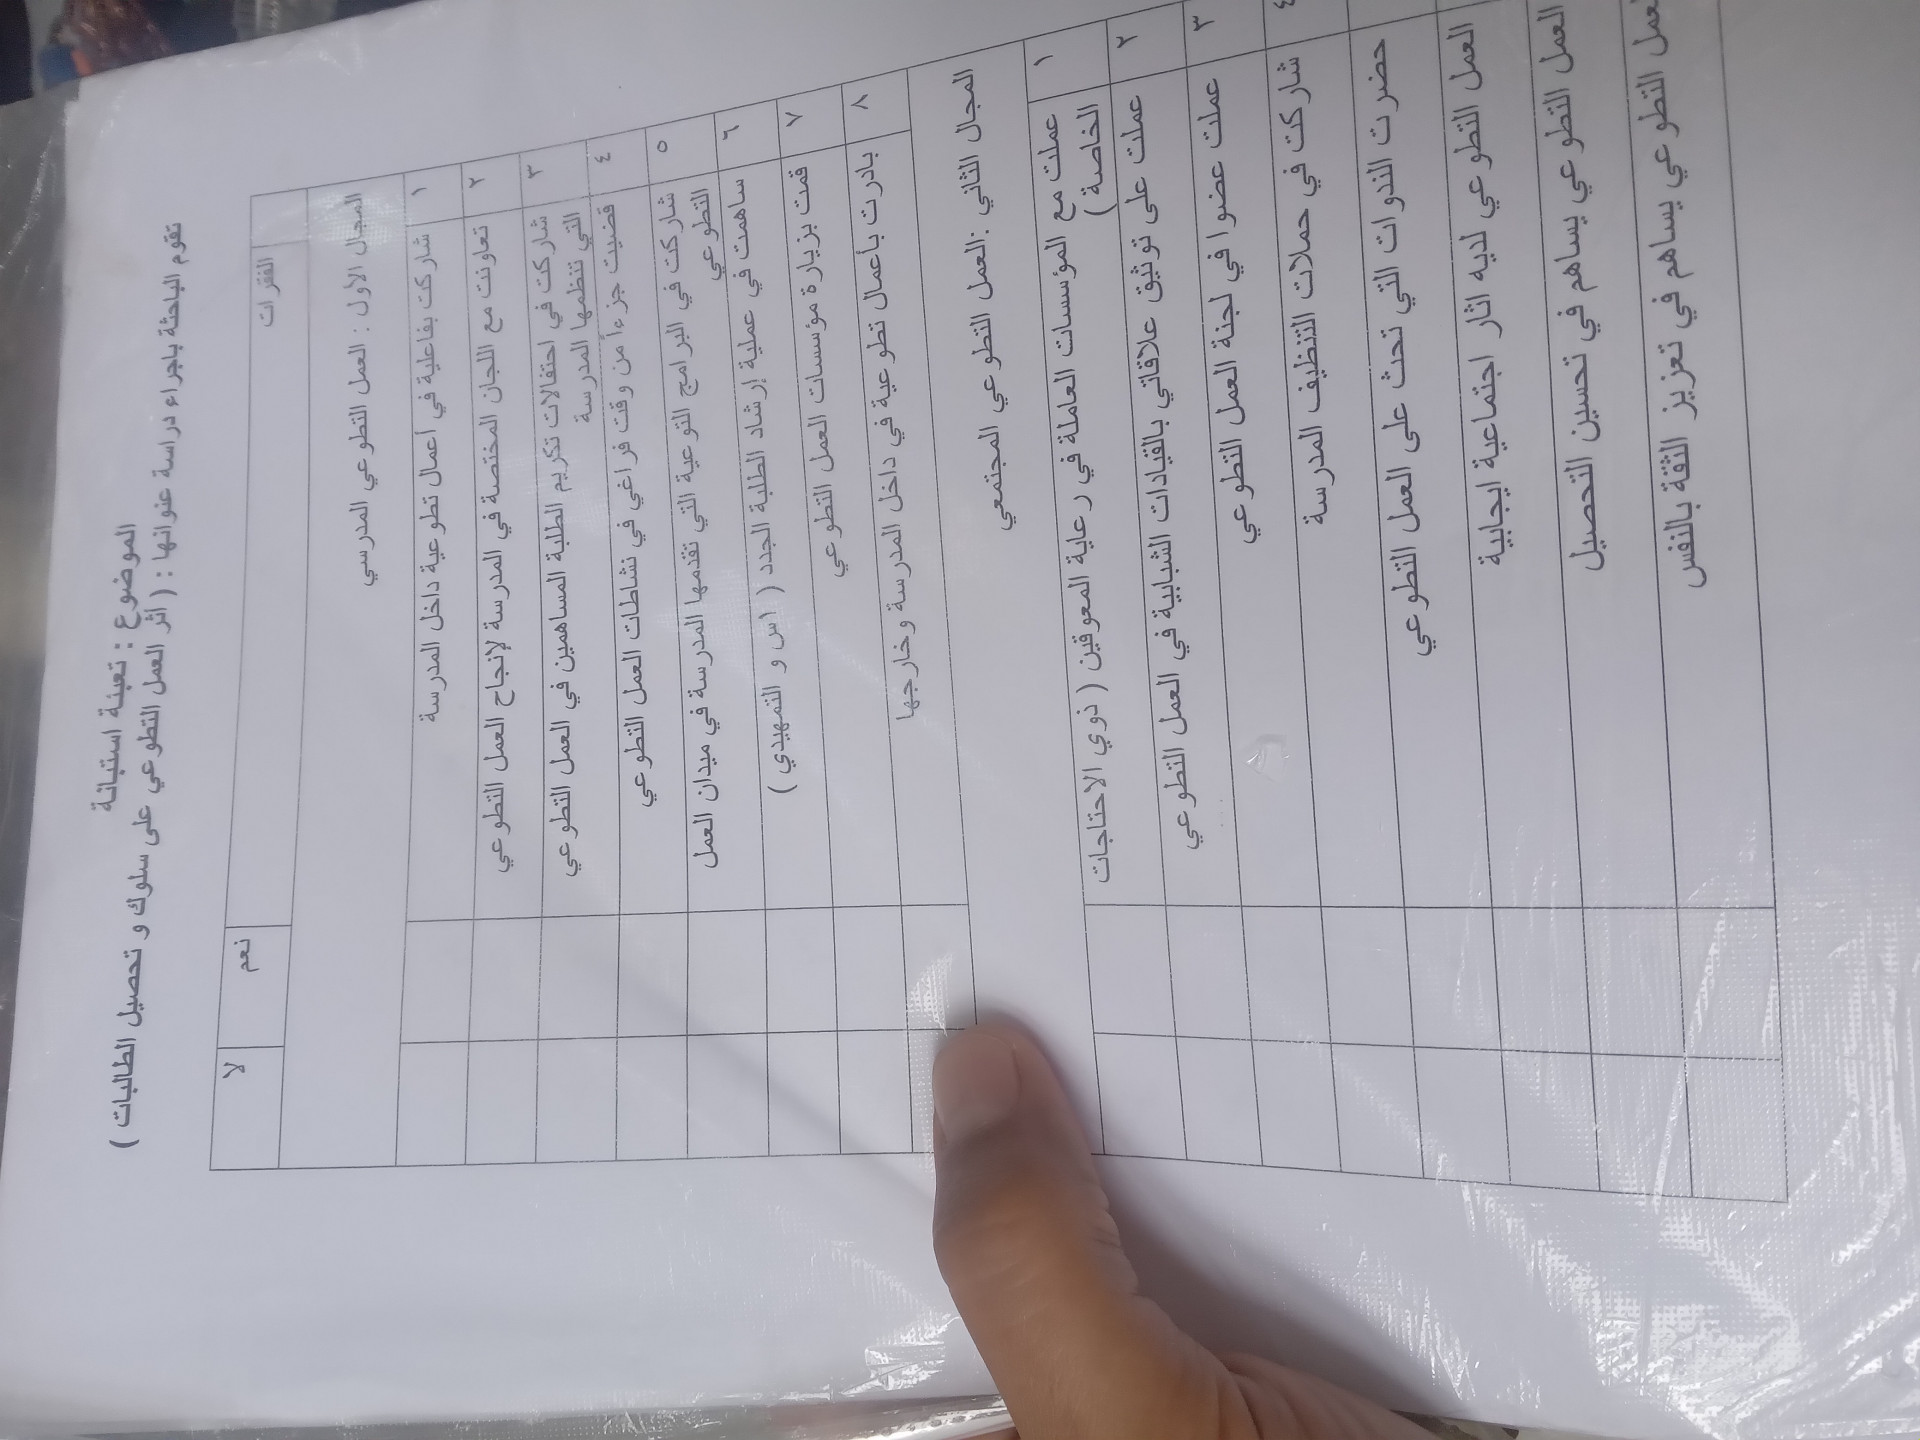 الموضوع : تعبئة استبانة
تقوم الباحثة باجراء دراسة عنوانها : ( اثر العمل التطوعي على سلوك و تحصيل الطالبات )
الفقرات نعم لا
المجال الاول : العمل التطوعي المدرسي
١ شاركت بفاعلية في أعمال تطوعية داخل المدرسة
٢ تعاونت مع اللجان المختصة في المدرسة لإنجاح العمل التطوعي
٣ شاركت في احتفالات تكريم الطلبة المساهمين في العمل التطوعي
التي تنظمها المدرسة
٤ قضيت جزءاً من وقت فراغي في نشاطات العمل التطوعي
٥ شاركت في البرامج التوعية التي تقدمها المدرسة في ميدان العمل
التطوعي
٦ ساهمت في عملية إرشاد الطلبة الجدد ( اس و التمهيدي )
٧ قمت بزيارة مؤسسات العمل التطوعي
٨ بادرت بأعمال تطوعية في داخل المدرسة وخارجها
المجال الثاني :العمل التطوعي المجتمعي
١ عملت مع المؤسسات العاملة في رعاية المعوقين ( ذوي الاحتاجات
الخاصة )
٢ عملت على توثيق علاقاتي بالقيادات الشبابية في العمل التطوعي
٣ عملت عضوا في لجنة العمل التطوعي
٤ شاركت في حملات التنظيف المدرسة
حضرت الندوات التي تحث على العمل التطوعي
العمل التطوعي لديه اثار اجتماعية ايجابية
العمل التطوعي يساهم في تحسين التحصيل
التطوعي يساهم في تعزيز الثقة بالنفس